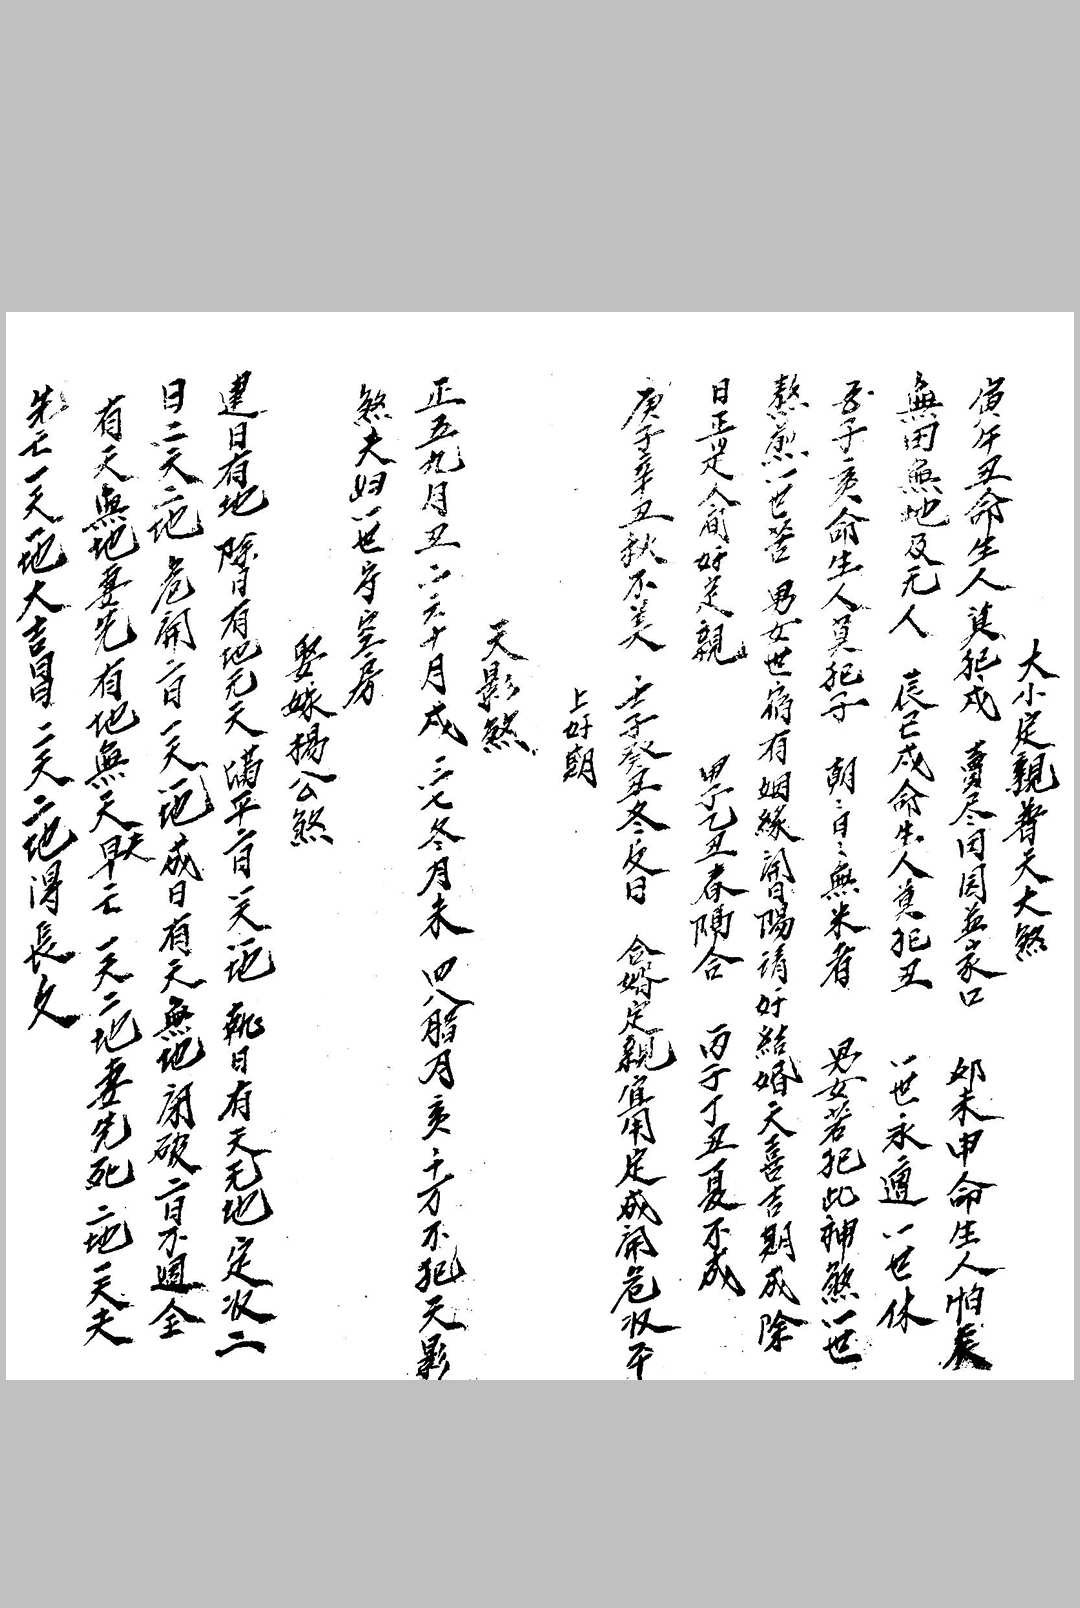 大小定親普天大煞
寅午丑命生人莫犯戌 賣尽田园並家口 卯未申命生人怕辰
無田無地及元人 辰巳戌命生人莫犯丑 一世永遭一世休
子亥命生人莫犯子 朝〻日〻無米者 男女若犯此神煞一世
熬煎一世苦 男女世宿有姻緣 開陽請好結婚天喜吉期成除
日正是人间好定親 甲子乙丑春隔合 丙子丁丑夏不成
庚子辛丑秋不美 壬子癸丑冬反日 合婚定親宜用定成開危收平
上好期
天影煞
正五九月丑 二六十月戌 三七冬月未 四八腊月亥 千万不犯天影
煞夫妇一世守空房
娶嫁楊公煞
建日有地 除日有地元天 滿平二日一天一地 執日有天无地 定收二
日二天二地 危開二日一天一地 成日有天無地 闭破二日不週全
有天無地妻先 有地無天早夫亡 一天二地妻先死 二地一天夫
先亡 一天一地大吉昌 二天二地得長久